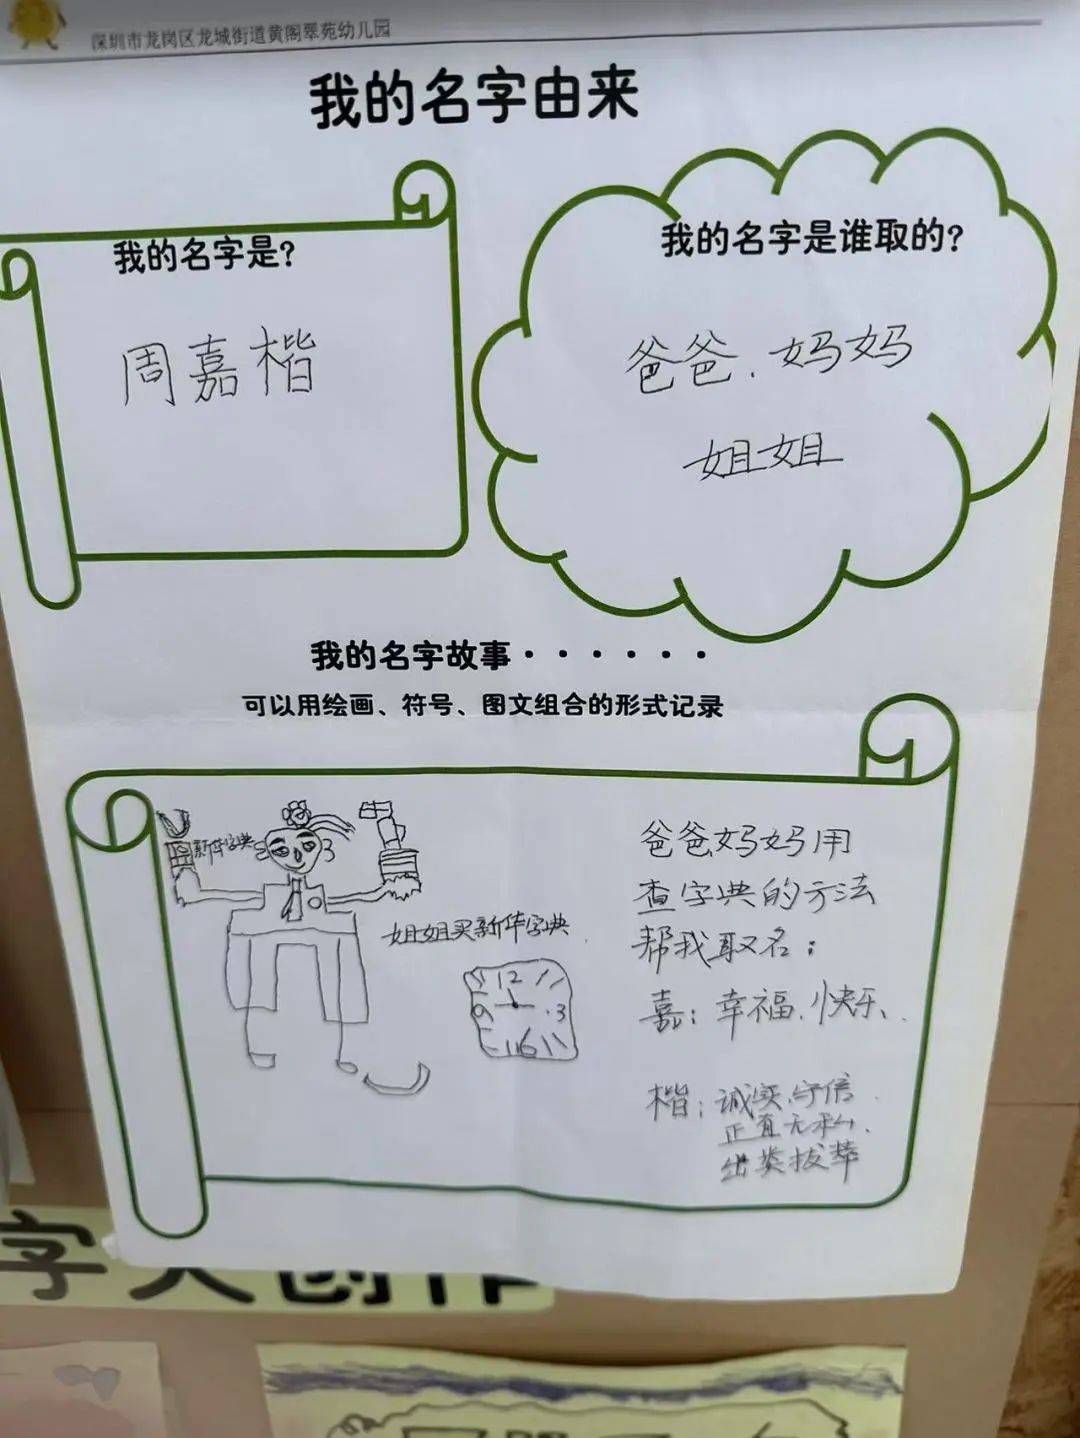 深圳市龙岗区龙城街道黄阁翠苑幼儿园
我的名字由来
我的名字是?
周嘉楷
我的名字是谁取的?
爸爸、妈妈
姐姐
我的名字故事······
可以用绘画、符号、图文组合的形式记录
新华字典
姐姐买新华字典
12
9
3
6
爸爸妈妈用
查字典的方法
帮我取名:
嘉:幸福、快乐、
楷:诚实、守信、
正直无私、
出类拔萃